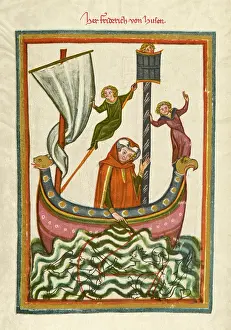 Her Friderich von Husen.